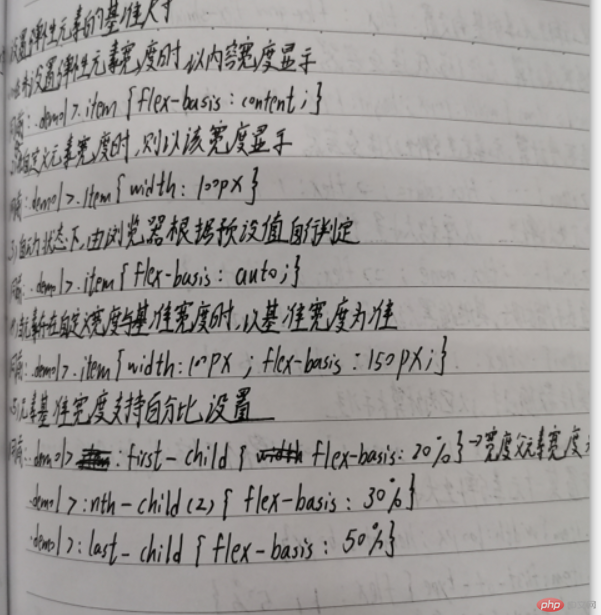 设置弹性元素的基准尺寸
未设置弹性元素宽度时,以内容宽度显示
.demo1>.item{flex-basis:content;}
自定义元素宽度时,则以该宽度显示
.demo1>.item{width:100px}
自动状态下,由浏览器根据预设值自行判定
.demo1>.item{flex-basis:auto;}
元素存在自定义宽度与基准宽度时,以基准宽度为准
.demo1>.item{width:100px;flex-basis:150px;}
元素基准宽度支持百分比设置
.demo1>:first-child{flex-basis:20%}→宽度父元素宽度
.demo1>:nth-child(2){flex-basis:30%}
.demo1>:last-child{flex-basis:50%}
php